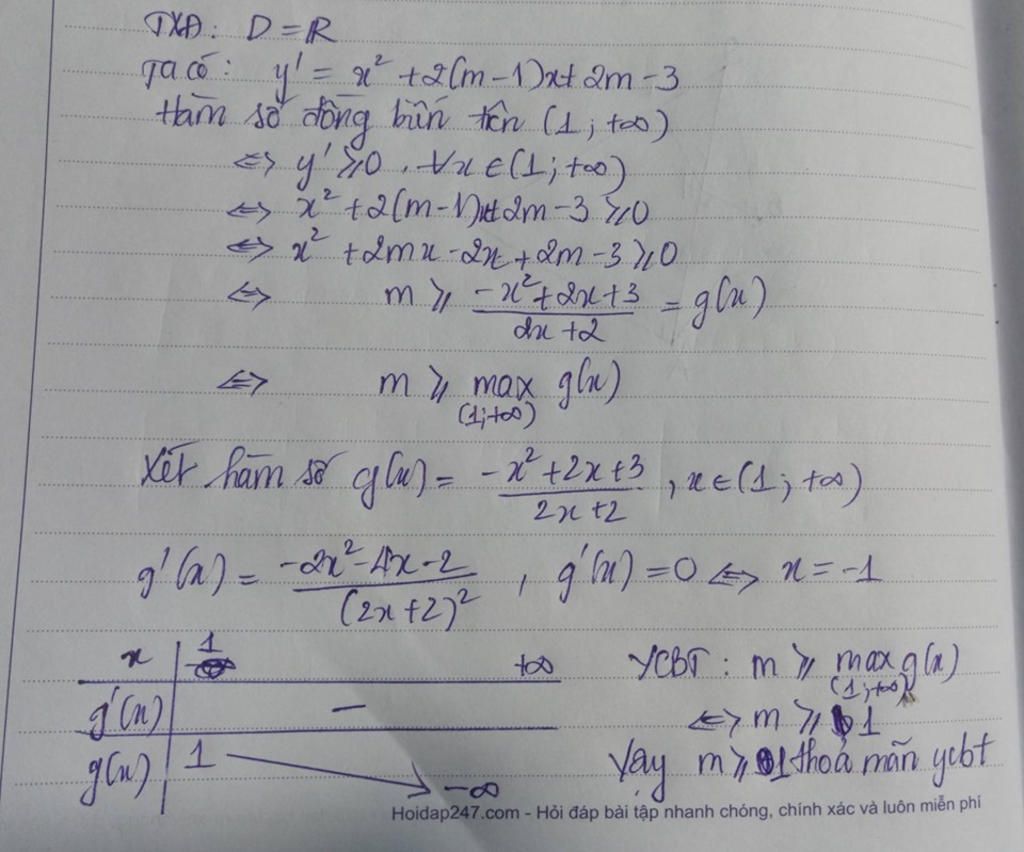 TXĐ: D = ℝ
Ta có: y' = x² + 2(m-1)x + 2m - 3
Hàm số đồng biến trên (1; +∞)
⇔ y' ≥ 0, ∀x ∈ (1; +∞)
⇔ x² + 2(m-1)x + 2m - 3 ≥ 0
⇔ x² + 2mx - 2x + 2m - 3 ≥ 0
⇔ m ≥ (-x² + 2x + 3)/(2x + 2) = g(x)
⇔ m ≥ max g(x)
(1; +∞)
Xét hàm số g(x) = (-x² + 2x + 3)/(2x + 2), x ∈ (1; +∞)
g'(x) = (-2x² - 4x - 2)/(2x + 2)², g'(x) = 0 ⇔ x = -1
x | 1 +∞
g'(x) | -
g(x) | 1 → -∞
YCBT: m ≥ max g(x)
(1; +∞)
⇔ m ≥ 1
Vậy m ≥ 1 thoả mãn ycbt
Hoidap247.com - Hỏi đáp bài tập nhanh chóng, chính xác và luôn miễn phí